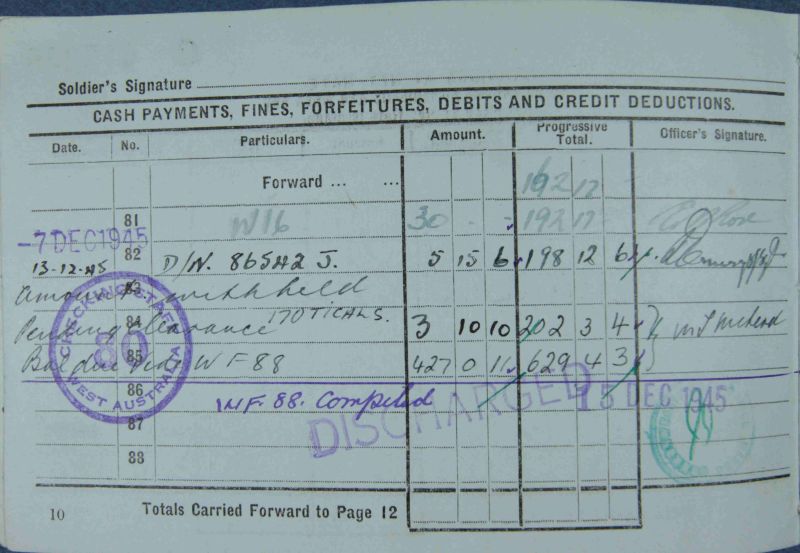 Soldier's Signature
CASH PAYMENTS, FINES, FORFEITURES, DEBITS AND CREDIT DEDUCTIONS.
Date. No. Particulars. Amount. Progressive Total. Officer's Signature.
Forward ... ... 162 17
81 W16 30 - - 192 17
-7 DEC 1945
13-12-45 82 D/N. 86542 J. 5 15 6 198 12 6
Amount 83 withheld
Pending 84 Clearance 170 TICALS. 3 10 10 202 3 4
Bal due 85 W F 88 427 0 11 629 4 3
CHECKING STAFF
80
WEST AUSTRALIA
86 W.F. 88. Completed
DISCHARGED 15 DEC 1945
87
88
10 Totals Carried Forward to Page 12